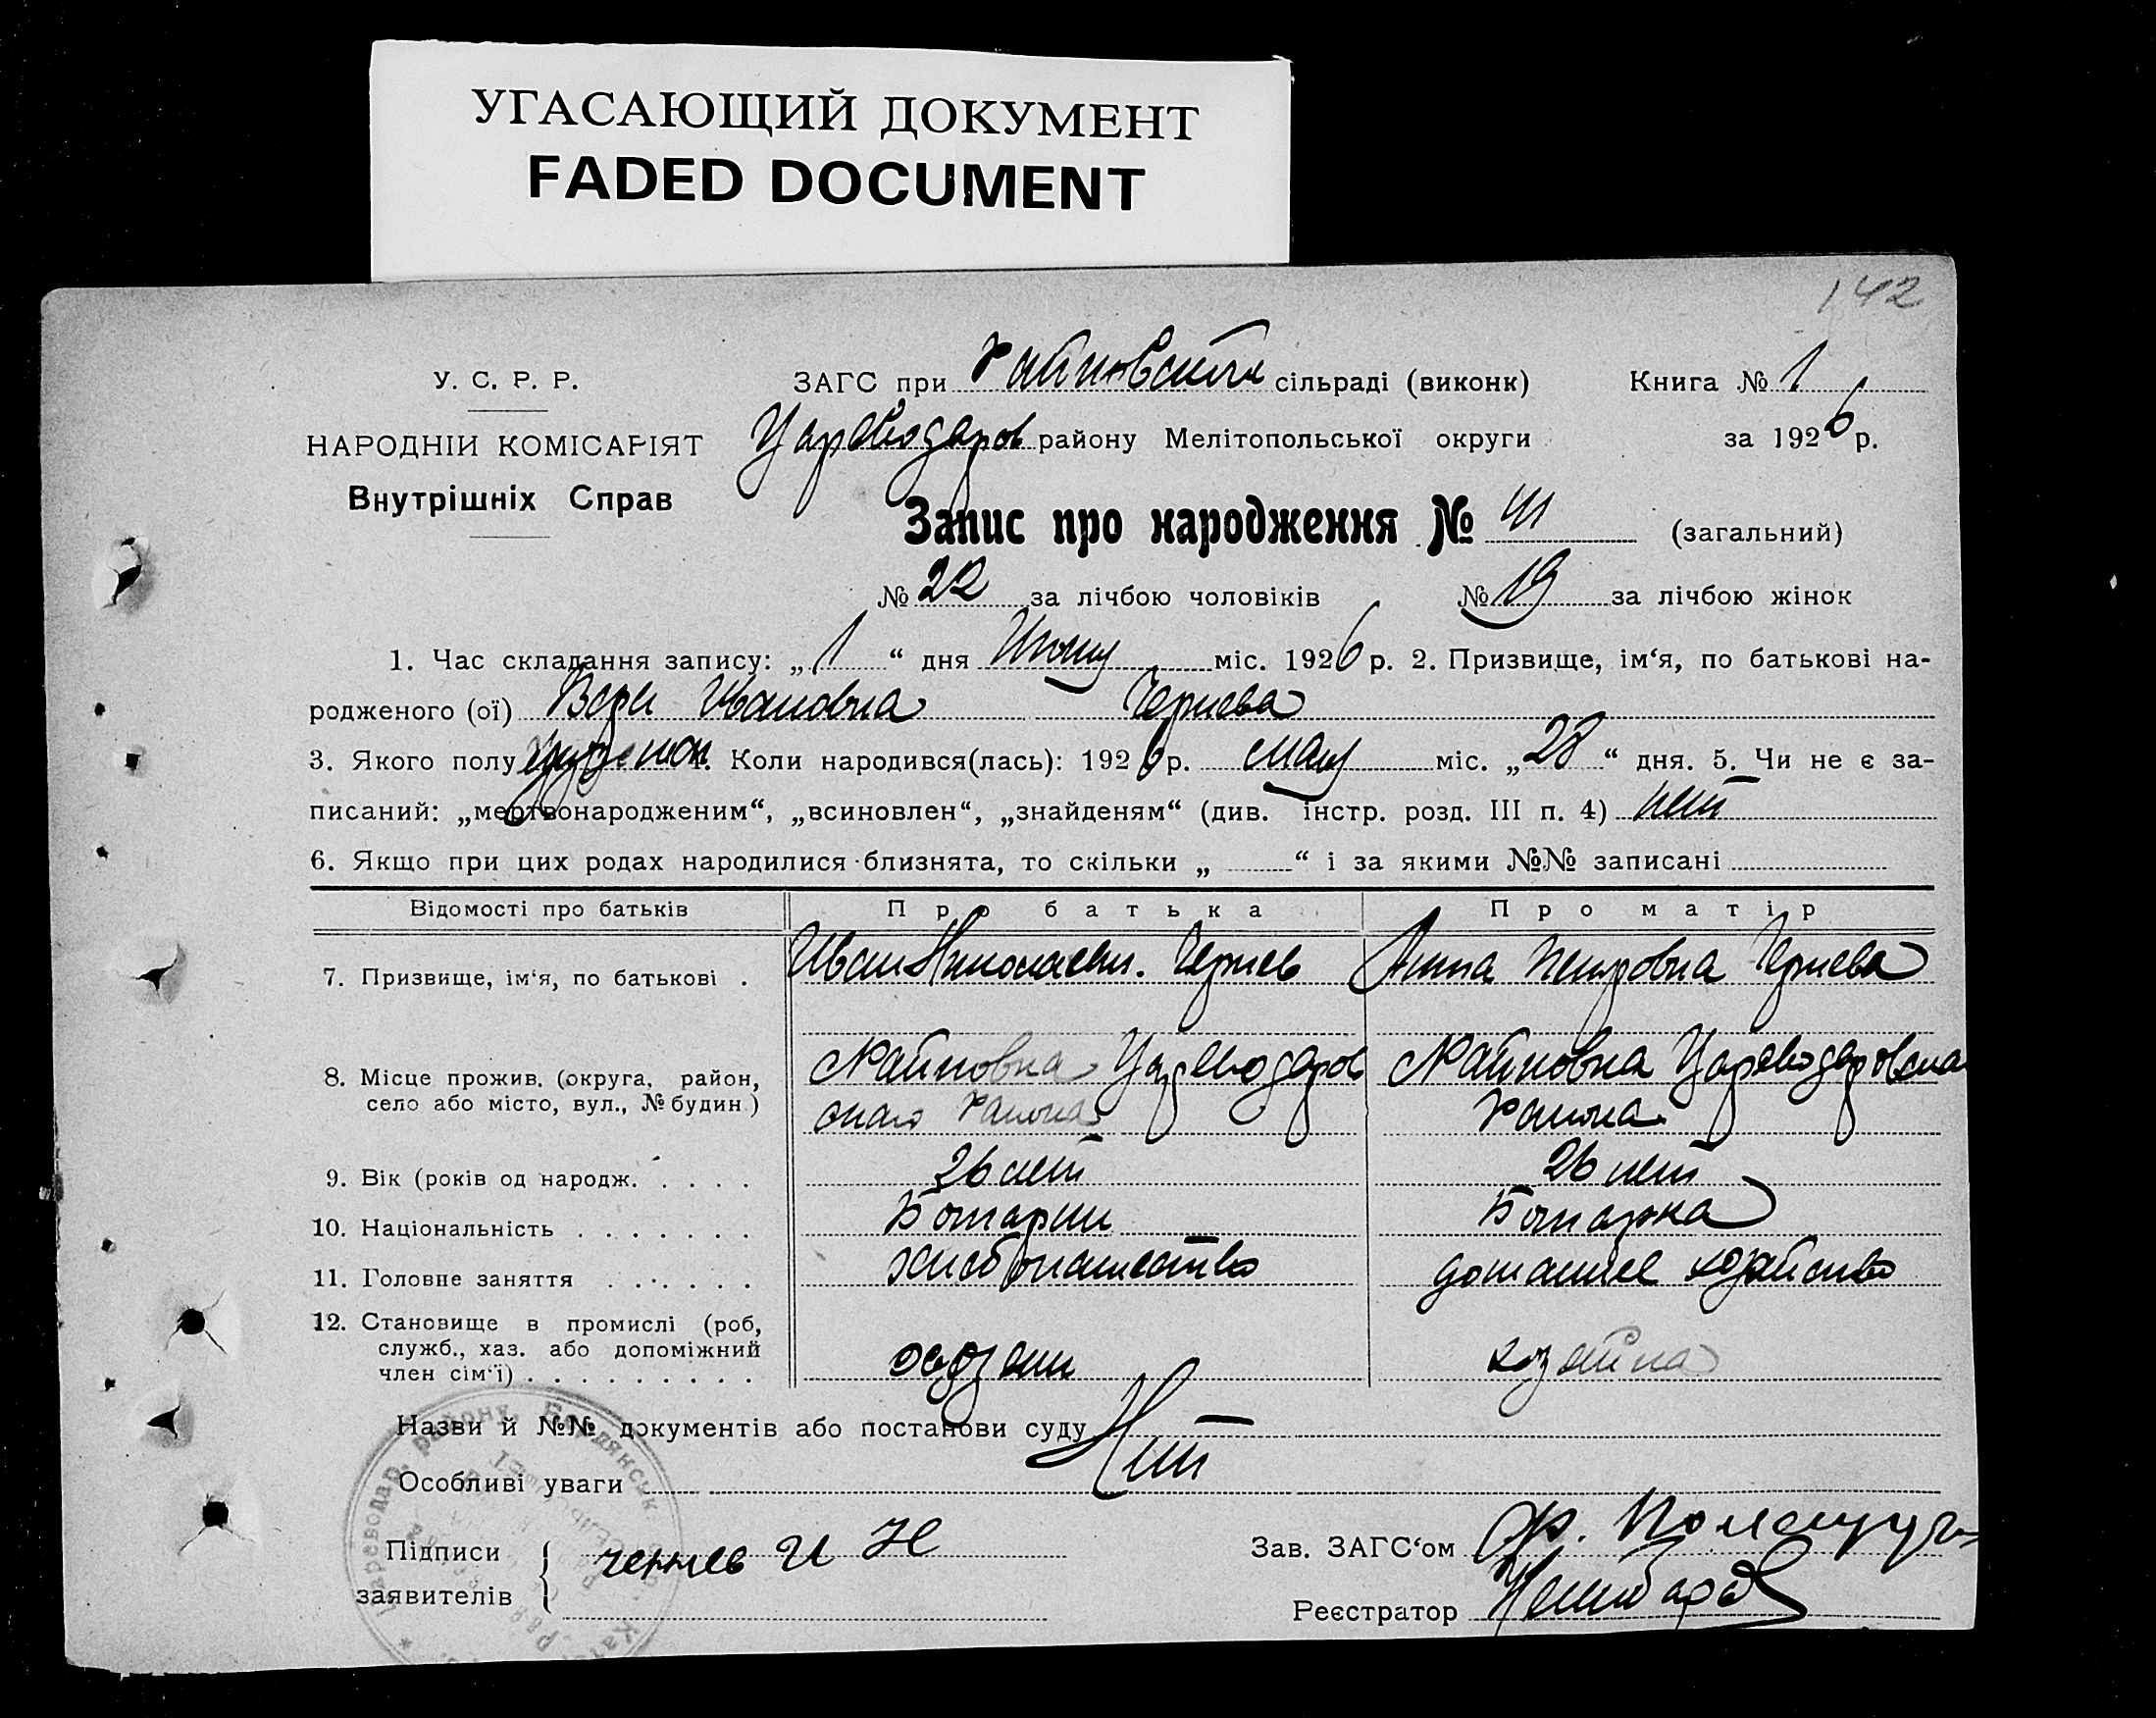 УГАСАЮЩИЙ ДОКУМЕНТ
FADED DOCUMENT
142
У. С. Р. Р.
НАРОДНІЙ КОМІСАРІЯТ
Внутрішніх Справ
ЗАГС при Райновском сільраді (виконк)
Книга № 1
Цареводаров району Мелітопольської округи
за 1926 р.
Запис про народження № 41 (загальний)
№ 22 за лічбою чоловіків № 19 за лічбою жінок
1. Час складання запису: „ 1 “ дня Июня міс. 1926 р. 2. Призвище, ім‘я, по батькові на-
родженого (ої) Вера Ивановна Чернева
3. Якого полу 4. Коли народився(лась): 1926 р. мая міс. „ 28 “ дня. 5. Чи не є за-
писаний: „мертвонародженим“, „всиновлен“, „знайденям“ (див. інстр. розд. III п. 4) нет
6. Якщо при цих родах народилися близнята, то скільки „ “ і за якими №№ записані
Відомості про батьків Про батька Про матір
7. Призвище, ім‘я, по батькові . Иван Николаевич. Чернев Анна Петровна Чернева
8. Місце прожив. (округа, район, село або місто, вул., № будин.) Райновка Цареводаров Райновка Цареводаровска
ского района района
9. Вік (років од народж. . . . . 26 лет 26 лет
10. Національність . . . . . . . Болгарин Болгарка
11. Головне заняття . . . . . . хлебопашество домашнее хозяйство
12. Становище в промислі (роб,
служб., хаз. або допоміжний
член сім‘ї) . . . . . . . . . хозяин хозяйка
Назви й №№ документів або постанови суду Нет
Особливі уваги
Підписи заявителів { чернев И Н
Зав. ЗАГС‘ом
Реєстратор
Цареводар. району, Бердянськ.